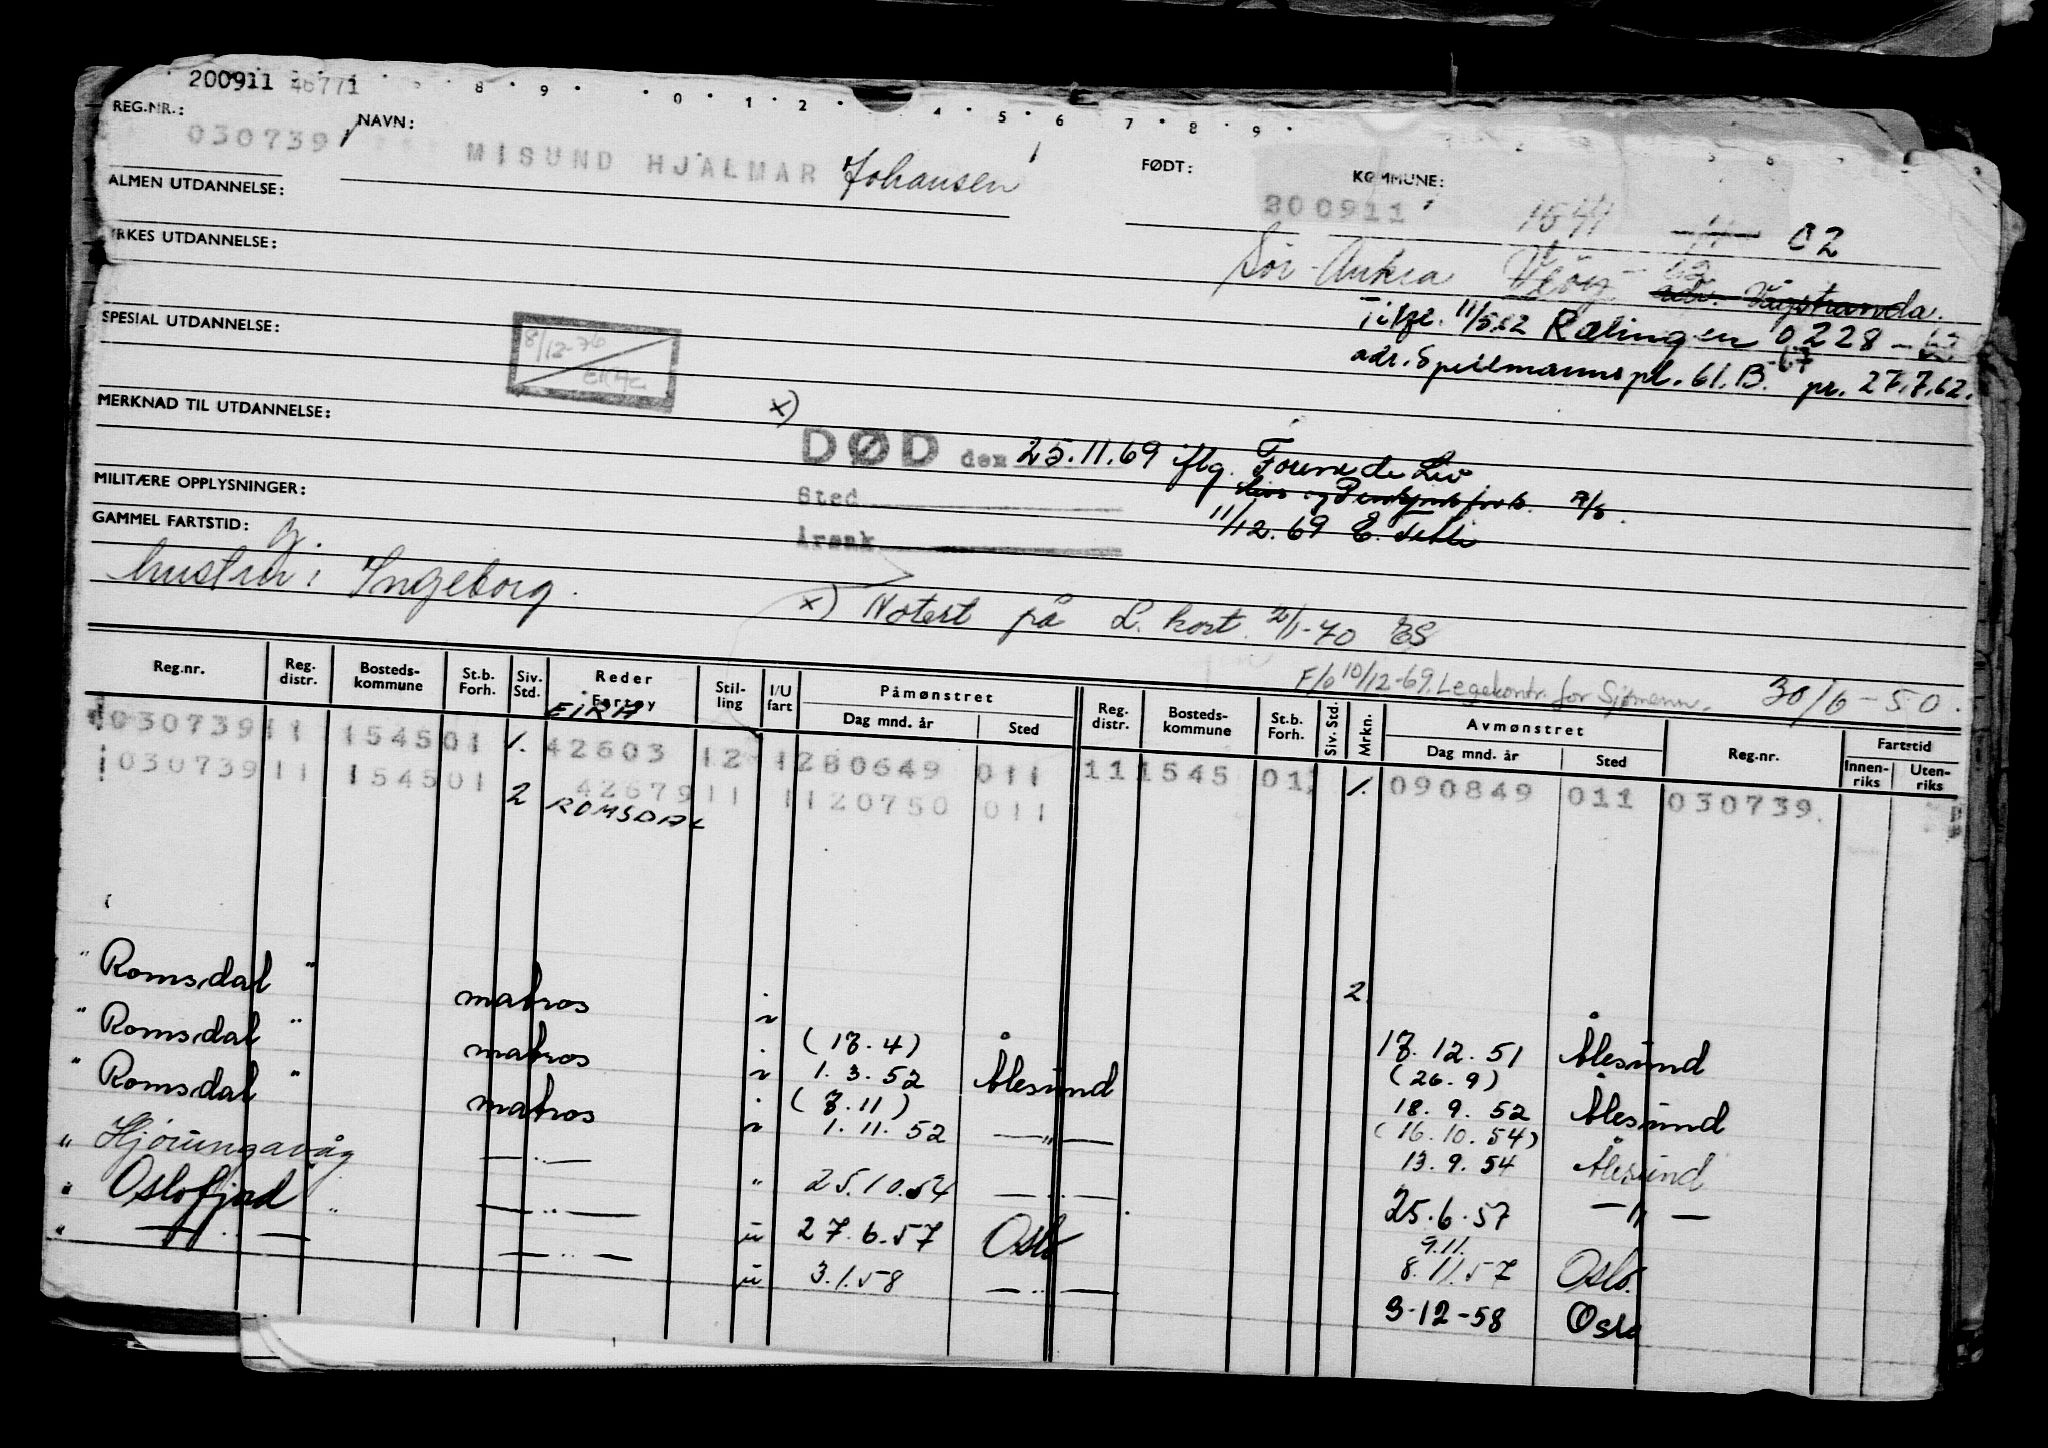 200911 46771
8 9 0 1 2 4 5 6 7 8 9
REG.NR.: NAVN: FØDT: KOMMUNE:
030739 MISUND HJALMAR Johansen 200911 1541 02
ALMEN UTDANNELSE:
Sør-Aukra Veøy adr. Vågstranda.
YRKES UTDANNELSE:
Rælingen 0228
adr. Spillmannspl. 61.B. -67 pr. 27.7.62.
SPESIAL UTDANNELSE:
8/12-76
MERKNAD TIL UTDANNELSE: x)
DØD den 25.11.69 iflg. Forenede Liv
MILITÆRE OPPLYSNINGER: Sted
GAMMEL FARTSTID: Årsak 11/12.69
hustru: Ingeborg.
x) Notert på L. kort. 2/1-70 ES
F/6 10/12-69. Legekontr. for Sjømenn. 30/6-50.
Reg.nr. Reg. distr. Bosteds-kommune St.b. Forh. Siv. Std. Reder Fartøy Stil-ling I/U fart Påmønstret Dag mnd. år Sted Reg. distr. Bosteds-kommune St.b. Forh. Siv. Std. Mrkn. Avmønstret Dag mnd. år Sted Reg.nr. Fartstid Innen-riks Uten-riks
EIRA
030739 11 1545 01 1. 42603 12 1 280649 011 11 1545 01 1. 090849 011 030739
030739 11 1545 01 2 42679 11 1 120750 011
ROMSDAL
" Romsdal " matros i 2. 17.12.51 Ålesund
" Romsdal " matros i (17.4) 1.3.52 Ålesund (26.9) 18.9.52 Ålesund
" Romsdal " matros i (7.11) 1.11.52 —"— (16.10.54) 13.9.54 Ålesund
" Hjørungavåg —"— " 25.10.54 —"— 25.6.57 —"—
" Oslofjord " —"— u 27.6.57 Oslo 9.11. 8.11.57 Oslo.
" —"— —"— u 3.1.58 —"— 3-12-58 Oslo